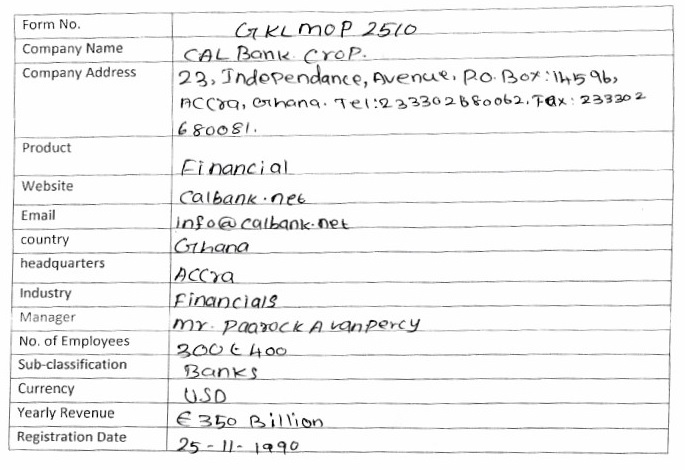 Form No. GKLMOP 2510
Company Name CAL Bank Crop.
Company Address 23, Independance, Avenue, P.O. Box: 14596,
ACCra, Ghana. Tel: 233302680062, Fax: 233302
680081.
Product Financial
Website Calbank.net
Email info@calbank.net
country Ghana
headquarters ACCra
Industry Financials
Manager Mr. Paarock A vanpercy
No. of Employees 300 € 400
Sub-classification Banks
Currency USD
Yearly Revenue € 350 Billion
Registration Date 25-11-1990